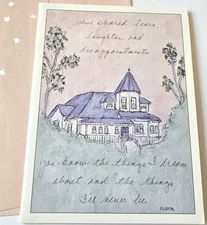 We've shared tears,
laughter and
disappointments
You know the things I dream
about and the things
I'll never be.